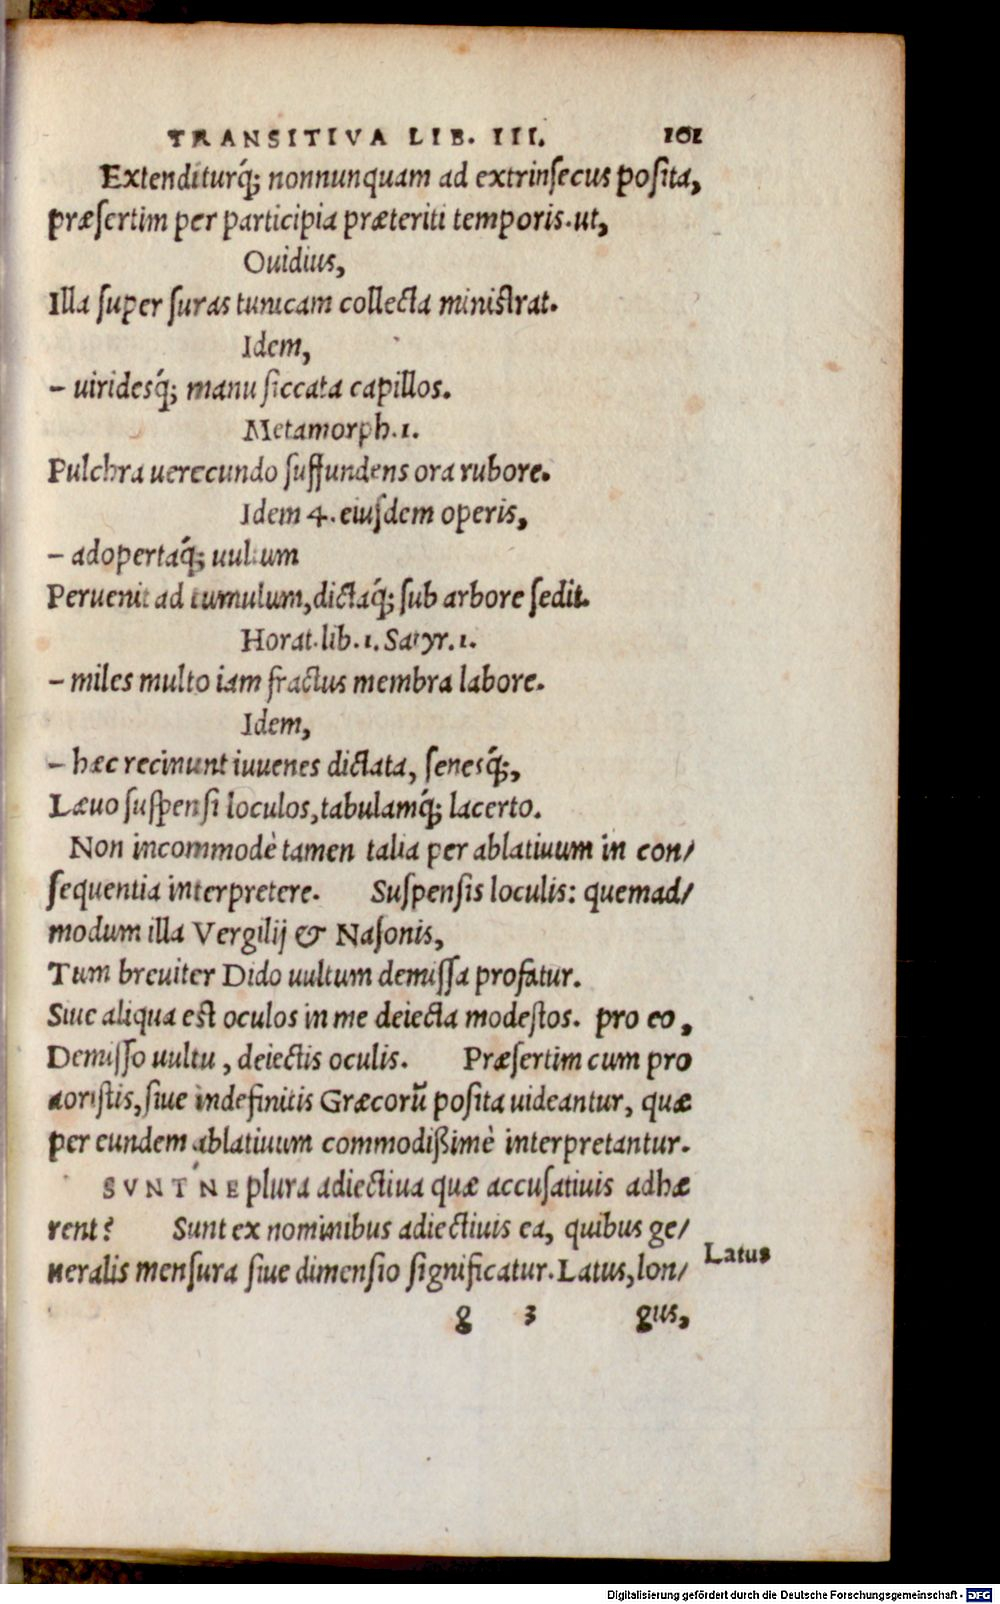 TRANSITIVA LIB. III. 101
Extenditurq́; nonnunquam ad extrinsecus posita,
præsertim per participia præteriti temporis. ut,
Ouidius,
Illa super suras tunicam collecta ministrat.
Idem,
– uiridesq́; manu siccata capillos.
Metamorph. 1.
Pulchra uerecundo suffundens ora rubore.
Idem 4. eiusdem operis,
– adopertaq́; uultum
Peruenit ad tumulum, dictaq́; sub arbore sedit.
Horat. lib. 1. Satyr. 1.
– miles multo iam fractus membra labore.
Idem,
– hæc recinunt iuuenes dictata, senesq́;,
Læuo suspensi loculos, tabulamq́; lacerto.
Non incommodè tamen talia per ablatiuum in con/
sequentia interpretere. Suspensis loculis: quemad/
modum illa Vergilij & Nasonis,
Tum breuiter Dido uultum demissa profatur.
Siue aliqua est oculos in me deiecta modestos. pro eo,
Demisso uultu, deiectis oculis. Præsertim cum pro
aoristis, siue indefinitis Græcorū posita uideantur, quæ
per eundem ablatiuum commodißimè interpretantur.
SVNTNE plura adiectiua quæ accusatiuis adhæ
rent? Sunt ex nominibus adiectiuis ea, quibus ge/
neralis mensura siue dimensio significatur. Latus, lon/
Latus
g 3 gus,
Digitalisierung gefördert durch die Deutsche Forschungsgemeinschaft - DFG